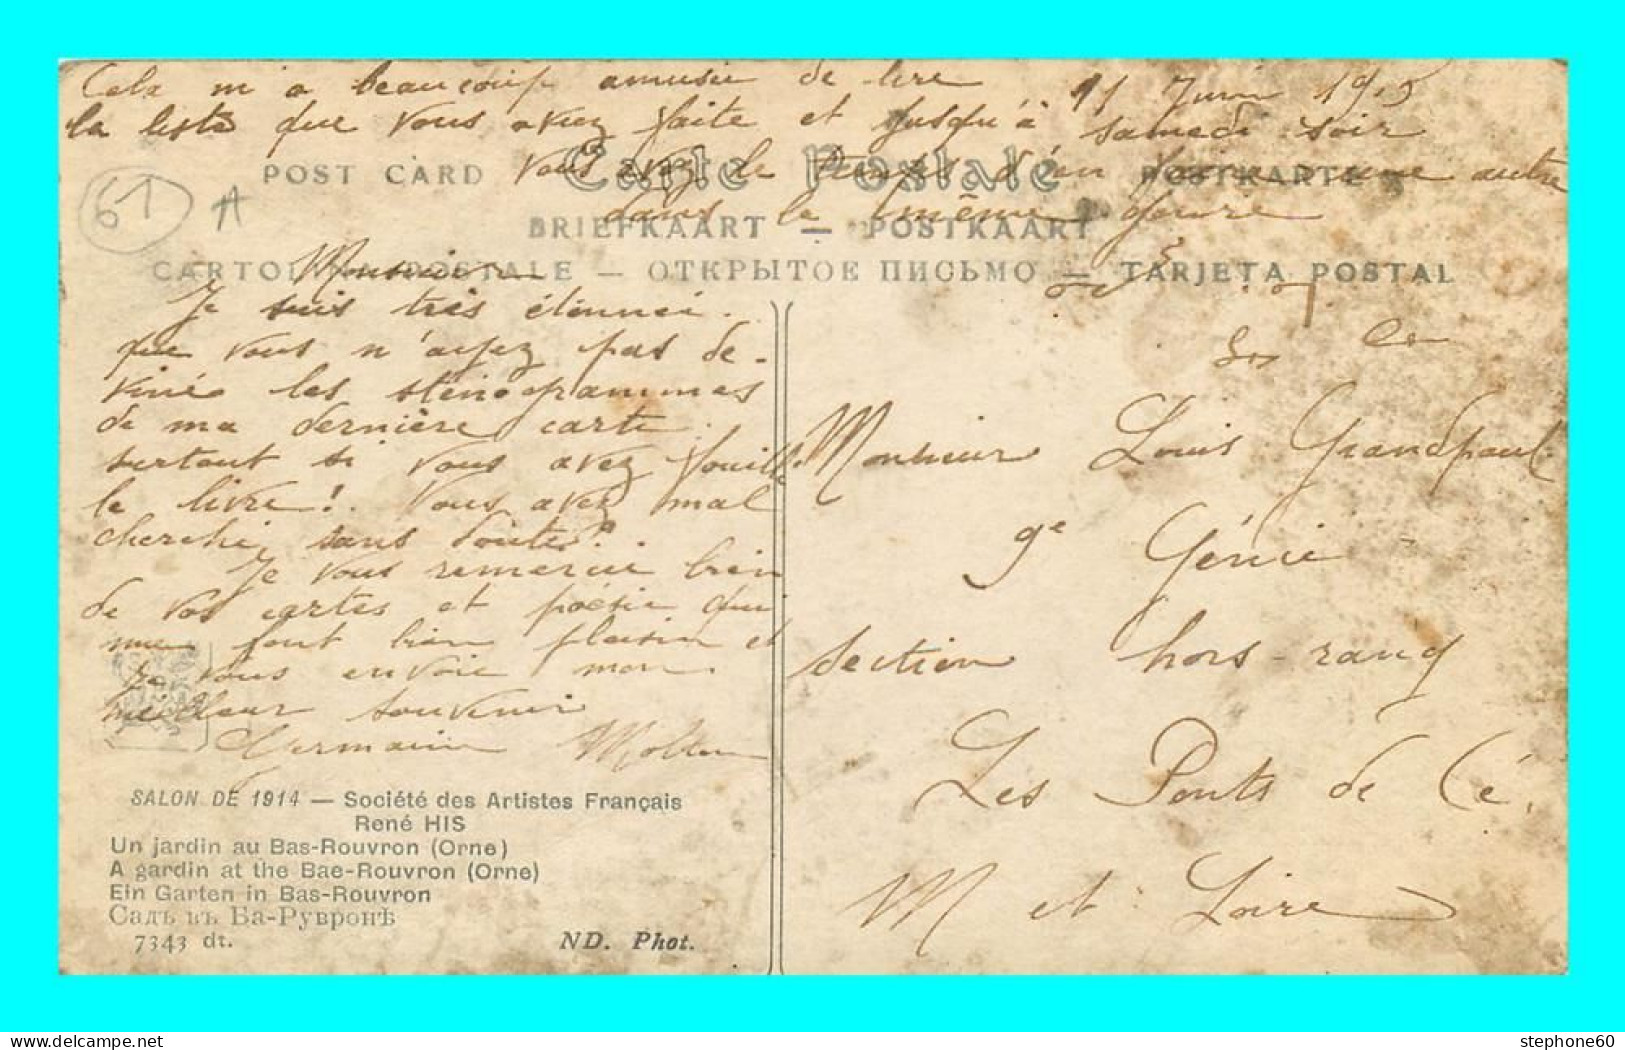 Cela m'a beaucoup amusée de lire
11 Juin 1915
la liste que vous avez faite et jusqu'à samedi soir
vous avez le temps d'en faire une autre
dans le même genre
POST CARD Carte Postale POSTKARTE
BRIEFKAART — POSTKAART
CARTOLINA POSTALE — ОТКРЫТОЕ ПИСЬМО — TARJETA POSTAL
61 A
Monsieur
Je suis très étonnée.
que vous n'ayez pas de-
viné les sténogrammes
de ma dernière carte.
surtout si vous avez fouillé
le livre! Vous avez mal
cherché, sans doute?
Je vous remercie bien
de vos cartes et poésie qui
me font bien plaisir et
je vous envoie mon
meilleur souvenir
Germaine
Monsieur Louis Grandpaul
9e Génie
section hors-rang
Les Ponts de Cé.
M et Loire
SALON DE 1914 — Société des Artistes Français
René HIS
Un jardin au Bas-Rouvron (Orne)
A gardin at the Bae-Rouvron (Orne)
Ein Garten in Bas-Rouvron
Садъ въ Ба-Рувронѣ
7343 dt. ND. Phot.
stephone60